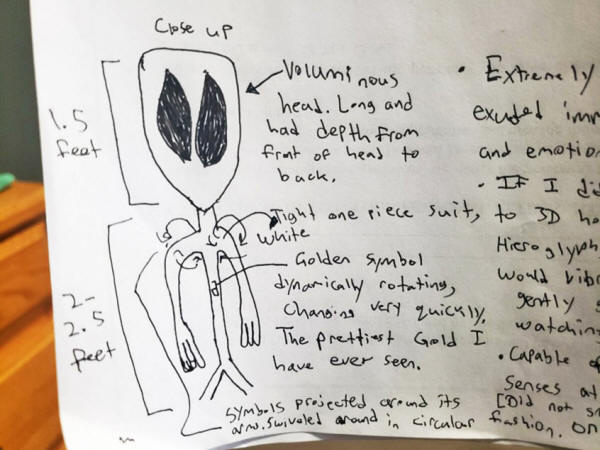 Close up
Voluminous
head. Long and
had depth from
front of head to
back.
1.5
feet
Tight one piece suit,
white
Golden symbol
dynamically rotating,
changing very quickly,
The prettiest Gold I
have ever seen.
2-
2.5
feet
Symbols projected around its
arm. swiveled around in circular fashion.
• Extremely
exuded
and emotion
• If I did
to 3D
Hieroglyph
would
gently
watching
• Capable
Senses at
[Did not